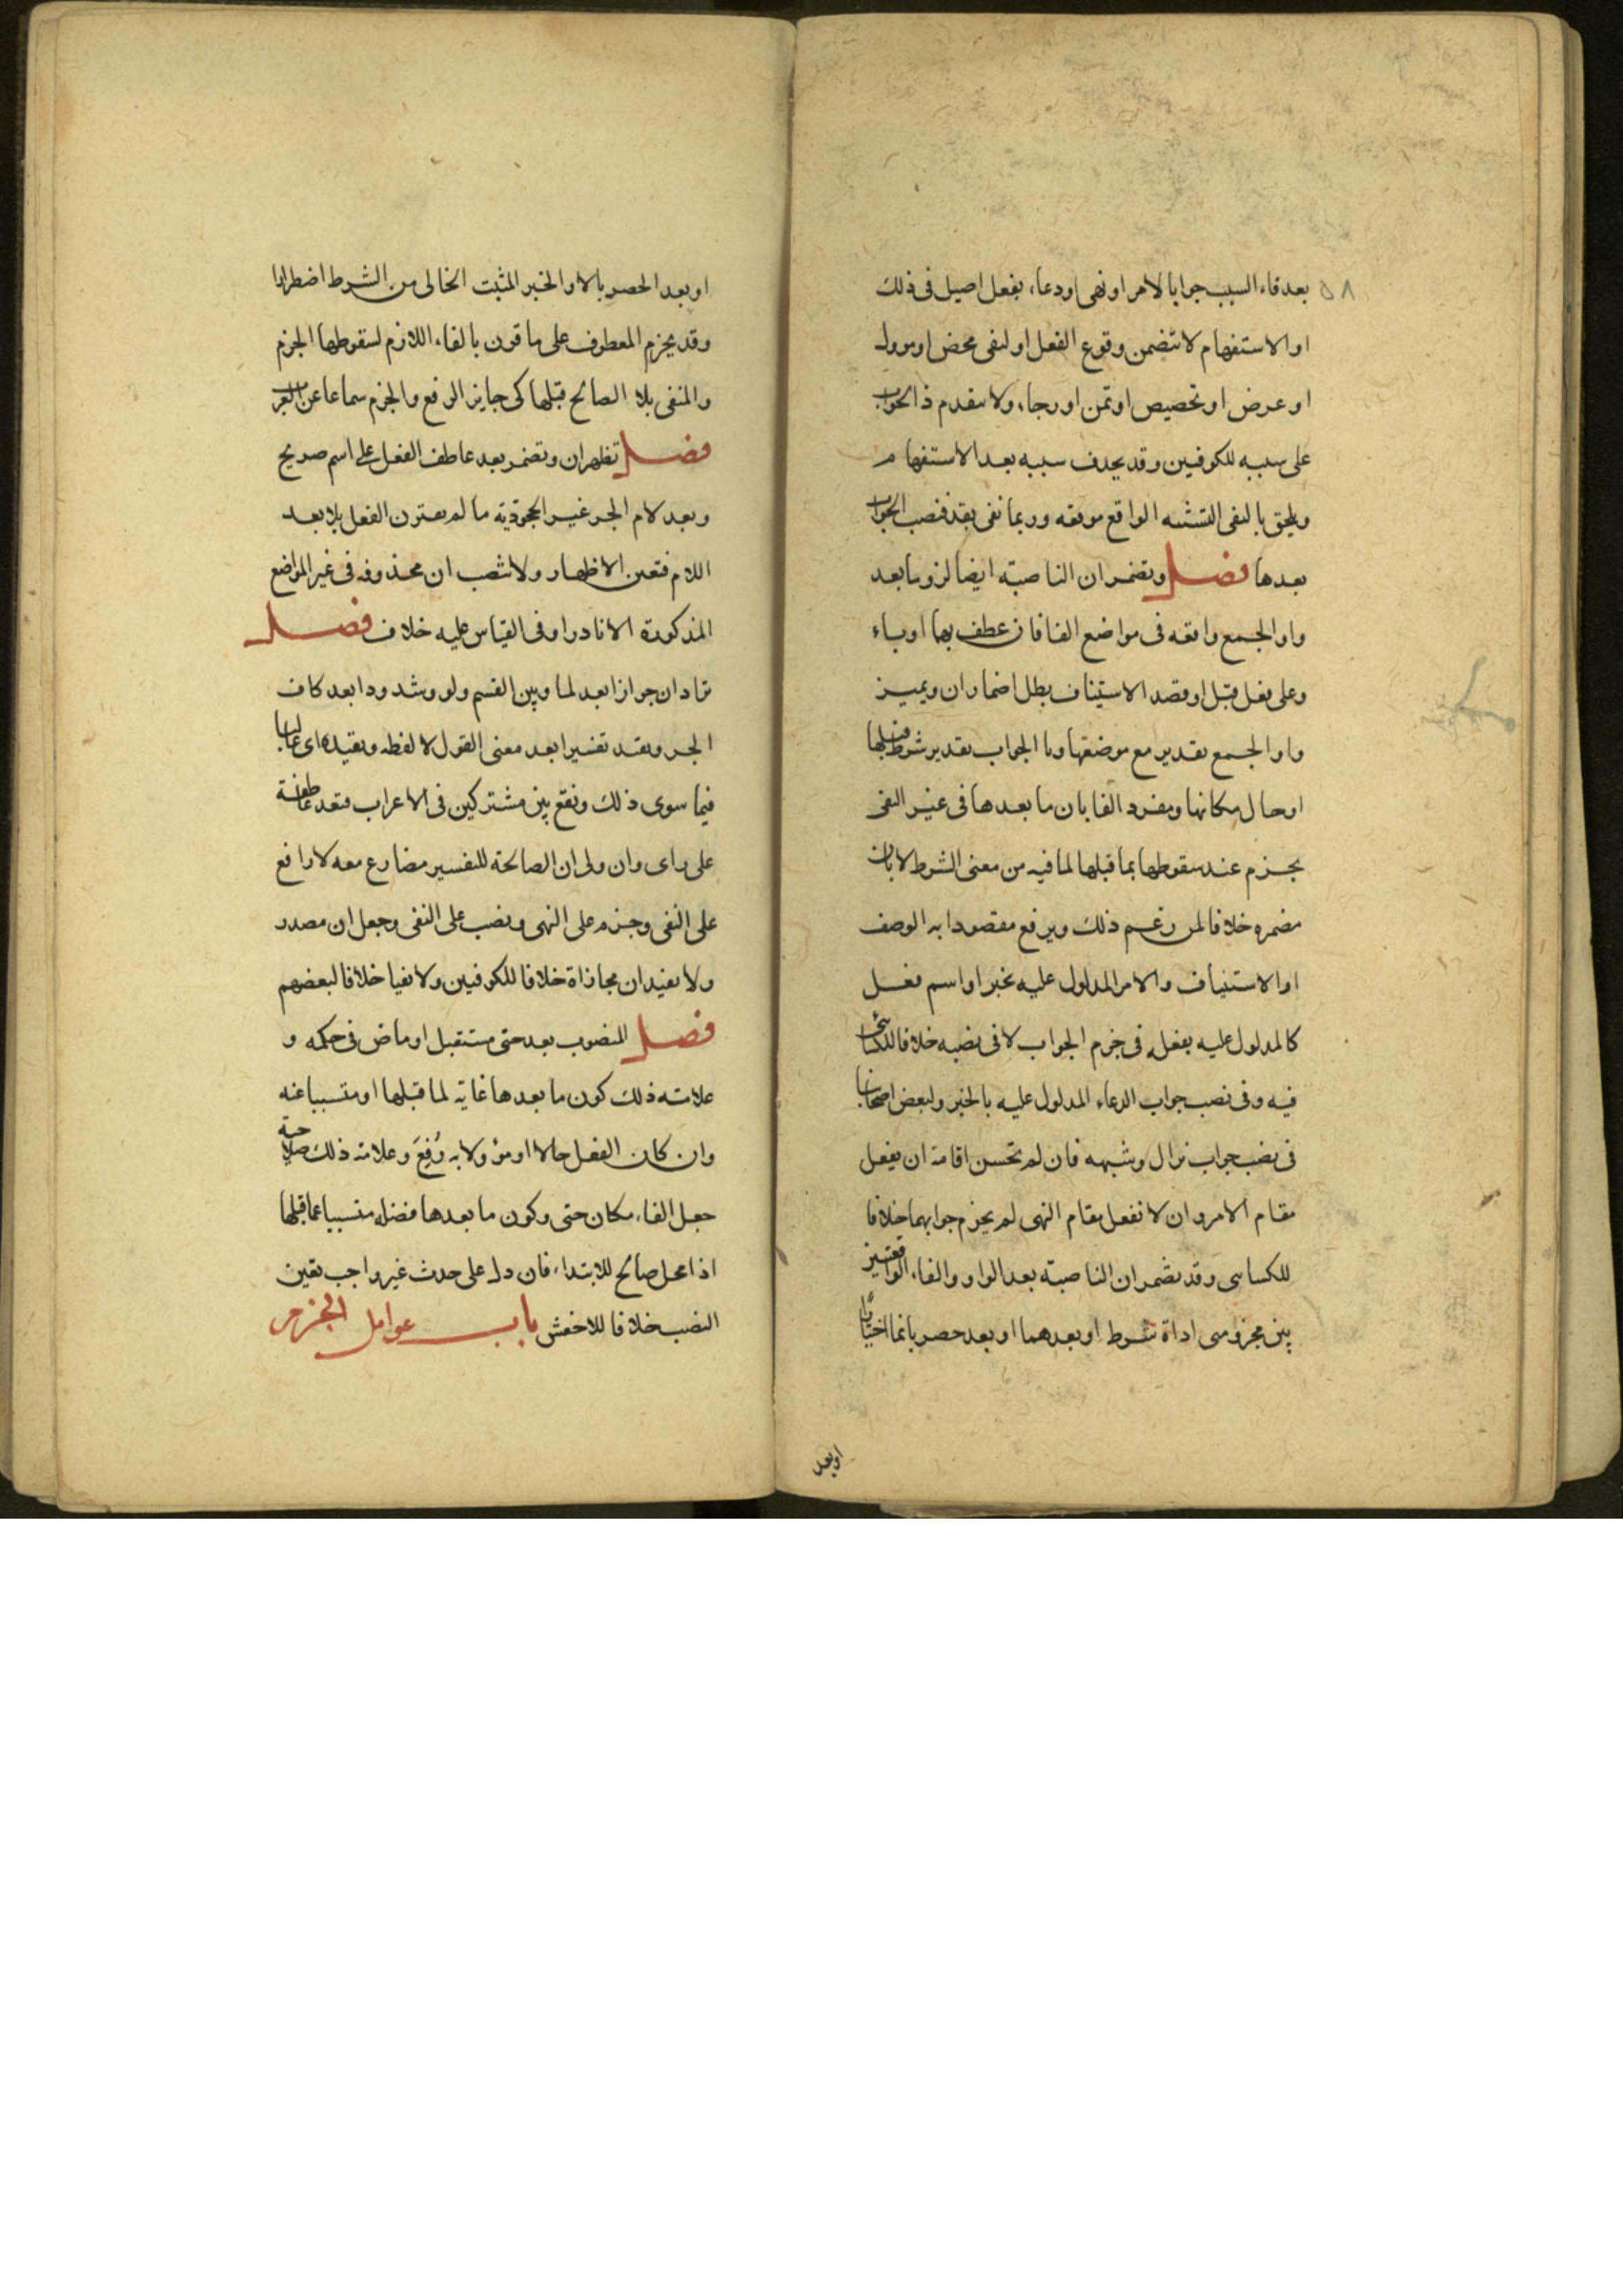 ٥٨
بعد فاء السبب جوابا لامر او نهى او دعاء بفعل اصيل فى ذلك
او الاستفهام لا تتضمن وقوع الفعل او لنفى محض او موول
او عرض او تحضيض او تمن او رجاء ولا يتقدم ذا الجواب
على سببه للكوفيين وقد يحذف سببه بعد الاستفهام
ويلحق بالنفى التشبيه الواقع موقعه وربما نفى بقد فنصب الجواب
بعدها فصل وتضمر ان الناصبة ايضا لزوما بعد
واو الجمع واقعه فى مواضع الفا فان عطف بهما او باء
وعلى فعل قبل او قصد الاستيناف بطل اضمار ان ويميز
واو الجمع تقدير مع موضعها وفا الجواب تقدير شرط قبلها
او حال مكانها ومفرد الفا بان ما بعدها فى غير النفى
يجزم عند سقوطها بما قبلها لما فيه من معنى الشرط لا بان
مضمره خلافا لمن زعم ذلك ويرفع مقصودا به الوصف
او الاستيناف والامر المدلول عليه بخبر او اسم فعل
كالمدلول عليه بفعله فى جزم الجواب لا فى نصبه خلافا للكسائى
فيه وفى نصب جواب الدعاء المدلول عليه بالخبر ولبعض اصحابنا
فى نصب جواب نزال وشبهه فان لم تحسن اقامة ان يفعل
مقام الامر وان لا تفعل مقام النهى لم يجزم جوابهما خلافا
للكساى وقد تضمر ان الناصبة بعد الواو والفاء الواقعتين
بين مجزومى اداة شرط او بعدهما او بعد حصر بانما اختيارا
او بعد
او بعد الحصر بالا والخبر المثبت الخالى من الشرط اضطرارا
وقد يجزم المعطوف على ما قرن بالفاء اللازم لسقوطها الجزم
والمنفى بلا الصالح قبلها كى جايز الرفع والجزم سماعا عن العرب
فصل تظهر ان وتضمر بعد عاطف الفعل على اسم صريح
وبعد لام الجر غير الجحودية ما لم يقترن الفعل بلا بعد
اللام فتعين الاظهار ولا تنصب ان محذوفه فى غير المواضع
المذكورة الا نادرا وفى القياس عليه خلاف فصل
تزاد ان جوازا بعد لما وبين القسم ولو وشذوذا بعد كاف
الجر وتفيد تفسيرا بعد معنى القول لا لفظه وتفيده اى غالبا
فيما سوى ذلك وتقع بين مشتركين فى الاعراب فتعد عاطفة
على راى وان ولى ان الصالحة للتفسير مضارع معه لا رافع
على النفى وجزم على النهى ونصب على النفى وجعل ان مصدر
ولا تفيد ان مجازاة خلافا للكوفيين ولا نفيا خلافا لبعضهم
فصل المنصوب بعد حتى مستقبل او ماض فى حكمه و
علامته ذلك كون ما بعدها غاية لما قبلها او متسببا عنه
وان كان الفعل حالا او مؤولا به رُفِعَ وعلامة ذلك صلاحية
جعل الفاء مكان حتى وكون ما بعدها فضله متسببا عما قبلها
اذا محل صالح للابتداء فان دل على حدث غير واجب تعين
النصب خلافا للاخفش باب عوامل الجزم